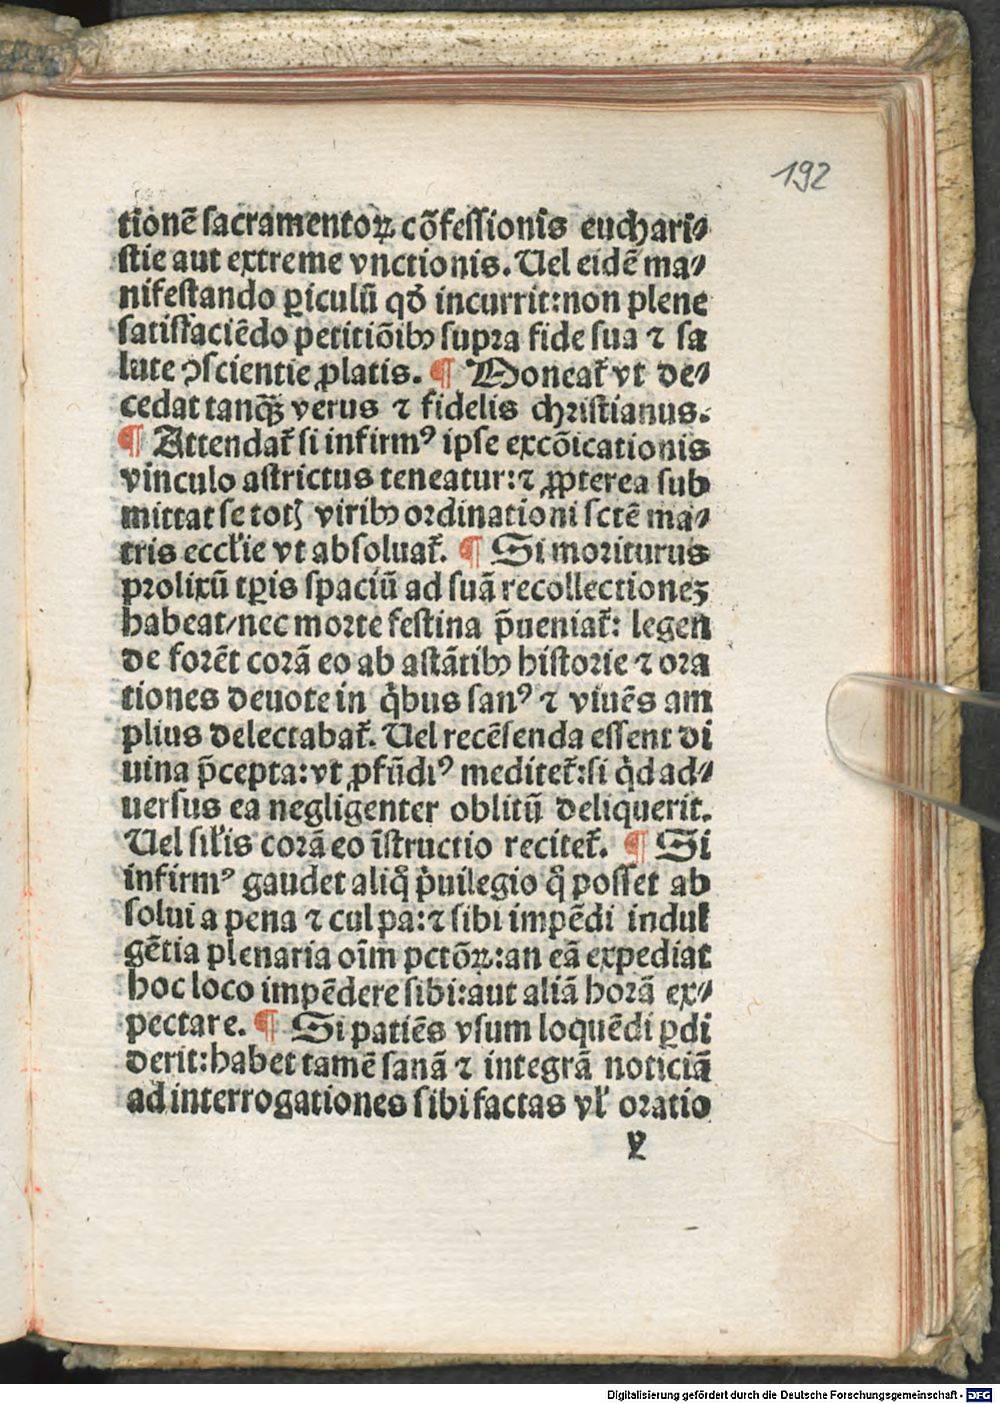 192
tionē sacramentoꝝ cōfessionis euchari⸗
stie aut extreme vnctionis. Uel eidē ma⸗
nifestando ꝑiculū qđ incurrit: non plene
satisfaciēdo petitiōibꝫ supra fide sua ⁊ sa
lute ꝯscientie ꝓlatis. ¶ Moneat᷑ vt de⸗
cedat tanqꝫ verus ⁊ fidelis christianus.
¶ Attendat᷑ si infirmꝰ ipse excōicationis
vinculo astrictus teneatur: ⁊ ꝓpterea sub
mittat se totꝭ viribꝫ ordinationi sctē ma⸗
tris eccl̓ie vt absoluat᷑. ¶ Si moriturus
prolixū tꝑis spaciū ad suā recollectionez
habeat/nec morte festina p̄ueniat᷑: legen
de forēt corā eo ab astātibꝫ historie ⁊ ora
tiones deuote in qͥbus sanꝰ ⁊ viuēs am
plius delectabat᷑. Uel recēsenda essent di
uina p̄cepta: vt ꝓfūdiꝰ meditet᷑: si qͥd ad⸗
uersus ea negligenter oblitū deliquerit.
Uel sil̓is corā eo īstructio recitet᷑. ¶ Si
infirmꝰ gaudet aliqͣ pͥuilegio qͣ posset ab
solui a pena ⁊ culpa: ⁊ sibi impēdi indul
gētia plenaria oīm pctōꝝ: an eā expediat
hoc loco impēdere sibi: aut aliā horā ex⸗
pectare. ¶ Si patiēs vsum loquēdi ꝑdi
derit: habet tamē sanā ⁊ integrā noticiā
ad interrogationes sibi factas vl̓ oratio
y
Digitalisierung gefördert durch die Deutsche Forschungsgemeinschaft - DFG